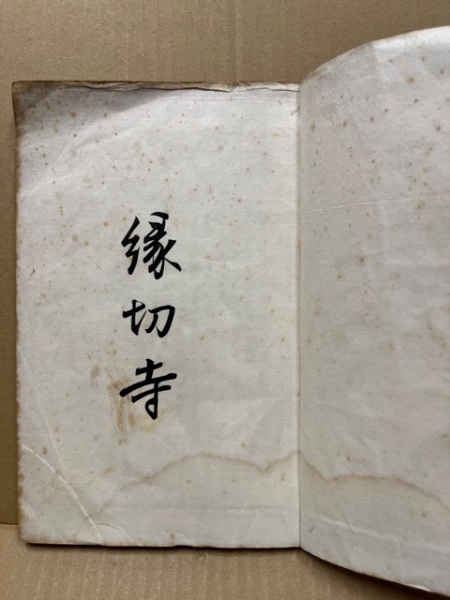 縁切寺